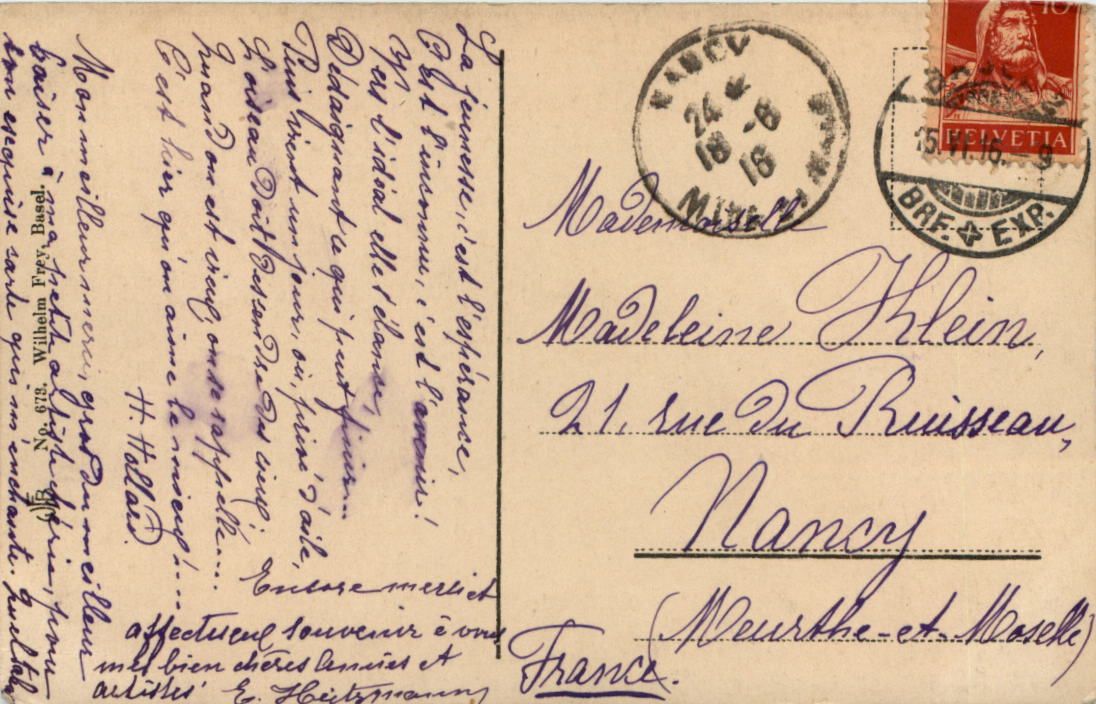 La jeunesse, c'est l'espérance,
C'est l'inconnu, c'est l'avenir!
Vers l'idéal elle s'élance,
Dédaignant ce qui peut finir...
Puis vient un jour, où, privé d'aile,
L'oiseau doit descendre des cieux;
Quand on est vieux, on se rappelle...
C'est hier qu'on aime le mieux!....
H. Hollard.
Mon meilleur merci, grand du meilleur
baiser à ma petite artiste chérie, pour
son esquise carte qui m'enchante. Quel
Encore merci et
affectueux souvenir à vous
mes bien chères amies et
artistes E. Heitzmann
No. 673. Wilhelm Frey, Basel.
NANCY
24 - 6
18 16
HELVETIA
15.VI.16. 9
BRF. EXP.
Mademoiselle
Madeleine Klein,
21, rue du Ruisseau,
Nancy
(Meurthe-et-Moselle)
France.